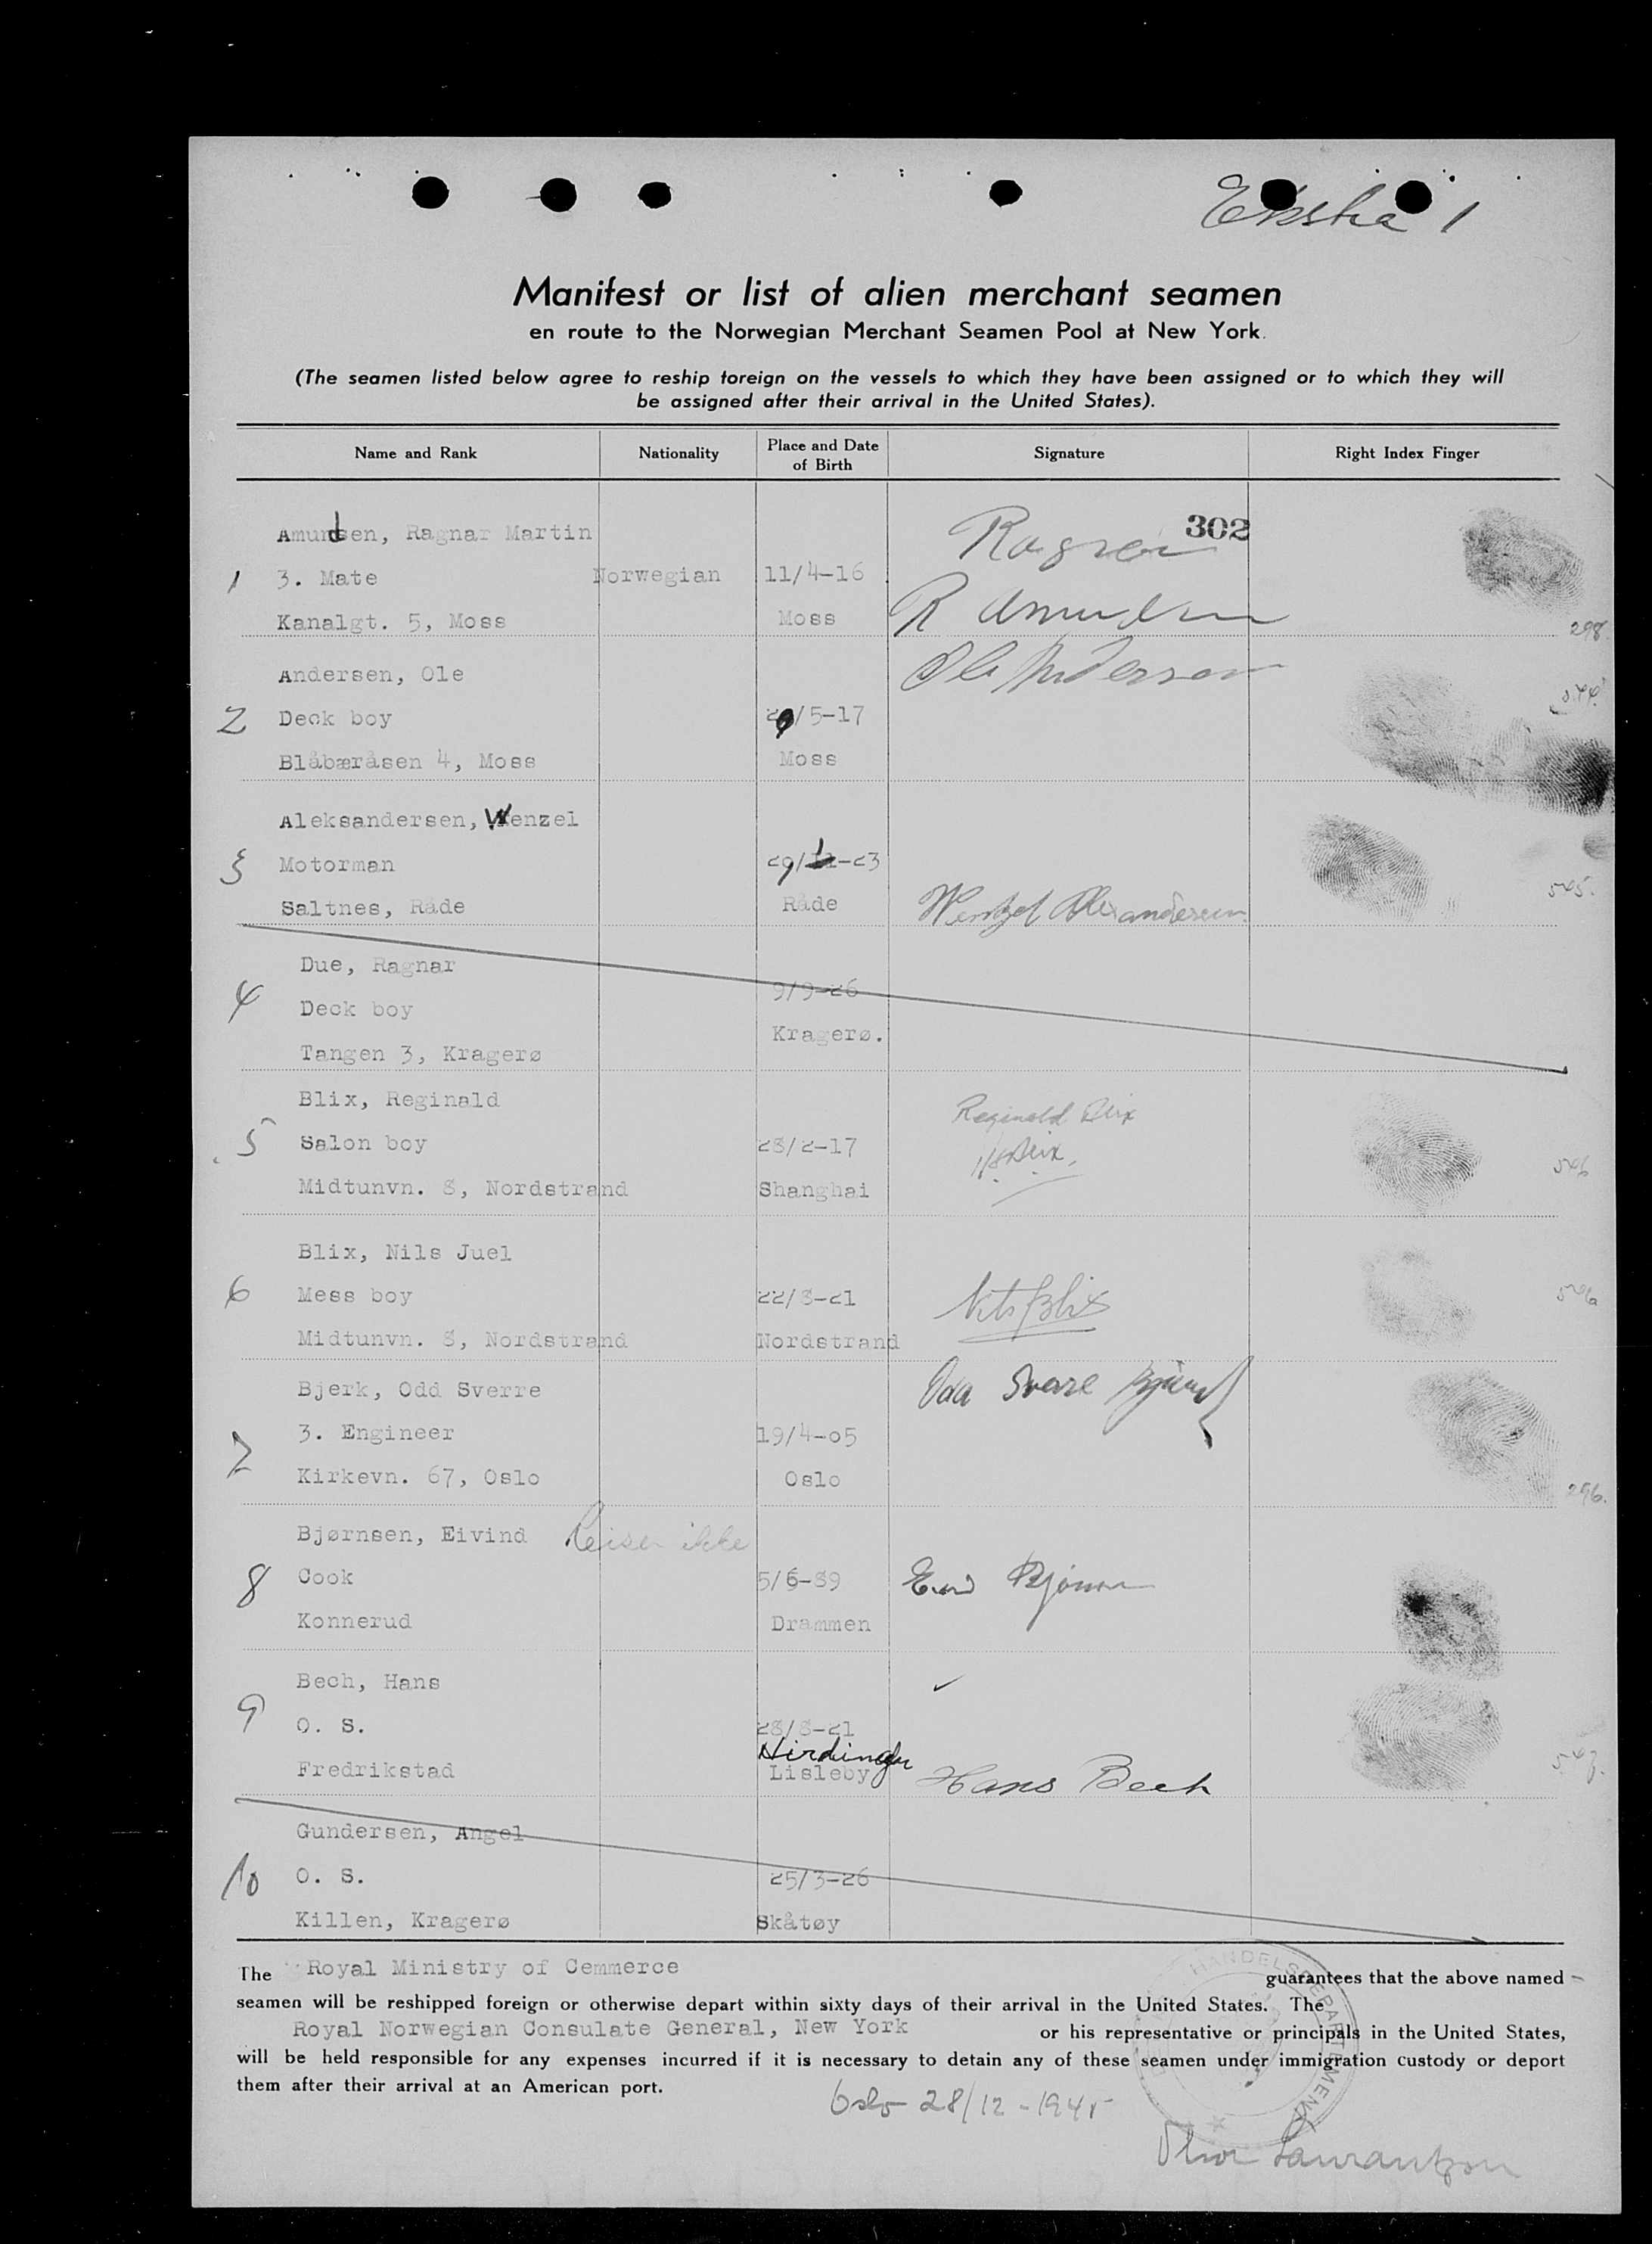 Ekstra 1
Manifest or list of alien merchant seamen
en route to the Norwegian Merchant Seamen Pool at New York.
(The seamen listed below agree to reship foreign on the vessels to which they have been assigned or to which they will
be assigned after their arrival in the United States).
Name and Rank Nationality Place and Date of Birth Signature Right Index Finger
302
Amundsen, Ragnar Martin Ragnar
1 3. Mate Norwegian 11/4-16
Kanalgt. 5, Moss Moss R Amundsen
298.
Andersen, Ole Ole Andersen
2 Deck boy 29/5-17
Blåbæråsen 4, Moss Moss
Aleksandersen, Wenzel
3 Motorman 29/1-23
Saltnes, Råde Råde Wentzel Alexandersen
545.
Due, Ragnar
4 Deck boy 9/9-26
Tangen 3, Kragerø Kragerø.
Blix, Reginald Reginald Blix
5 Salon boy 28/2-17
Midtunvn. 8, Nordstrand Shanghai
546
Blix, Nils Juel
6 Mess boy 22/8-21 Nils Blix
Midtunvn. 8, Nordstrand Nordstrand
Bjerk, Odd Sverre Odd Sverre Bjerk
7 3. Engineer 19/4-05
Kirkevn. 67, Oslo Oslo
296.
Bjørnsen, Eivind Reiser ikke
8 Cook 5/6-89
Konnerud Drammen
Bech, Hans
9 O. S. 28/8-21
Fredrikstad Lisleby Hans Bech
Gundersen, Angel
10 O. S. 25/3-26
Killen, Kragerø Skåtøy
The Royal Ministry of Cemmerce guarantees that the above named
seamen will be reshipped foreign or otherwise depart within sixty days of their arrival in the United States. The
Royal Norwegian Consulate General, New York or his representative or principals in the United States,
will be held responsible for any expenses incurred if it is necessary to detain any of these seamen under immigration custody or deport
them after their arrival at an American port.
HANDELSDEPARTEMENT
Oslo 28/12-1945